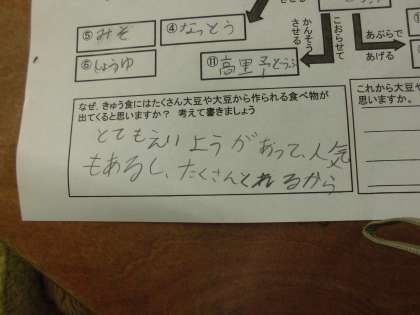 ⑤みそ
④なっとう
⑥しょうゆ
⑪高里予とうふ
かんそう
させる
こおらせて
あぶらで
あげる
なぜ、きゅう食にはたくさん大豆や大豆から作られる食べ物が
出てくると思いますか？ 考えて書きましょう
とてもえいようがあって、人気
もあるし、たくさんとれるから
これから大豆や
思いますか。